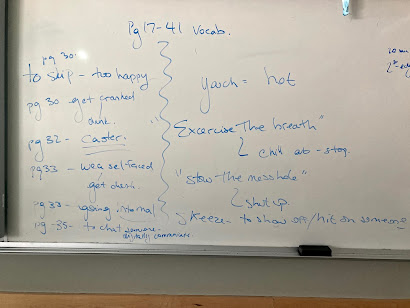 Pg 17-41 Vocab.
pg 30.
to skip - too happy
pg 30 get cranked
drnk.
pg 32 - caster.
pg 33 - weasel-faced
get drnk.
pg 33 - going internal
pg - 35 - to chat someone
digitally communicate
10 min
yach = hot
Excercise The breath"
chill at - stop.
"stow The messhole"
shut up.
skeeze - to show off/hit on someone